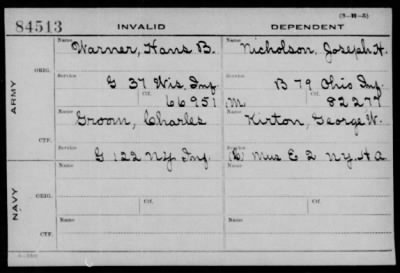 (3-H-5)
84513 INVALID DEPENDENT
Name Warner, Hans B. Name Nicholson, Joseph H.
ARMY
ORIG.
Service G 37 Wis. Inf. Service B 79 Ohio Inf.
Ctf. 66951 M. Ctf. 82277
Name Groom, Charles Name Kirton, George W.
CTF.
Service G 122 N.Y. Inf. Service (C) Mus E 2 N.Y. H.A.
NAVY
Name Name
ORIG.
Service Ctf. Service Ctf.
Name Name
CTF.
Service Service